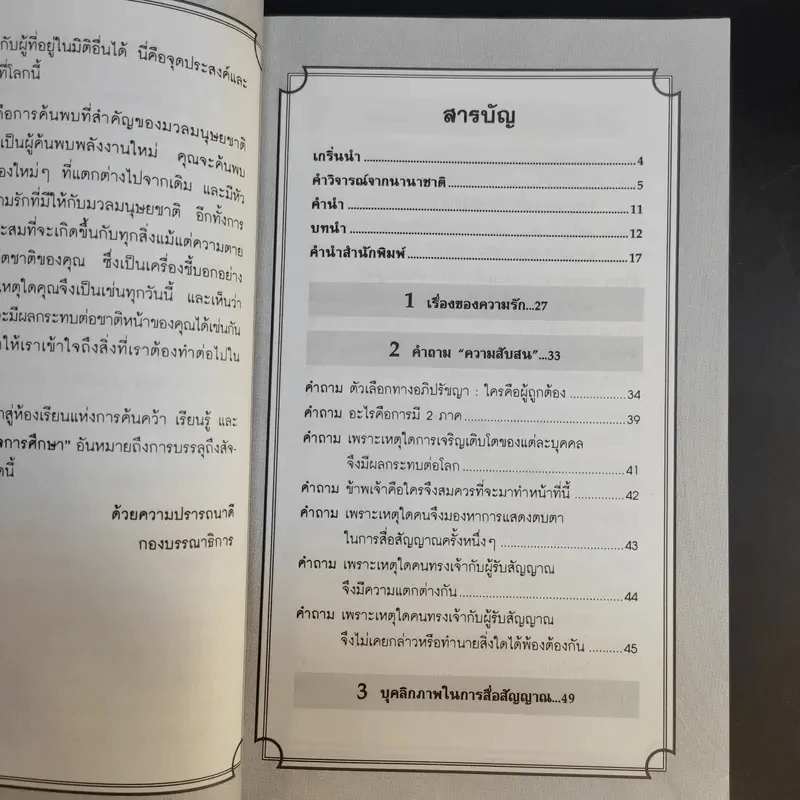 กับผู้ที่อยู่ในมิติอื่นได้ นี่คือจุดประสงค์และ
ที่โลกนี้
คือการค้นพบที่สำคัญของมวลมนุษยชาติ
เป็นผู้ค้นพบพลังงานใหม่ คุณจะค้นพบ
ใหม่ๆ ที่แตกต่างไปจากเดิม และมีหัว
รักที่มีให้กับมวลมนุษยชาติ อีกทั้งการ
สมที่จะเกิดขึ้นกับทุกสิ่งแม้แต่ความตาย
ชาติของคุณ ซึ่งเป็นเครื่องชี้บอกอย่าง
เหตุใดคุณจึงเป็นเช่นทุกวันนี้ และเห็นว่า
จะมีผลกระทบต่อชาติหน้าของคุณได้เช่นกัน
ให้เราเข้าใจถึงสิ่งที่เราต้องทำต่อไปใน
สู่ห้องเรียนแห่งการค้นคว้า เรียนรู้ และ
การศึกษา" อันหมายถึงการบรรลุถึงสัจ-
นี้
ด้วยความปรารถนาดี
กองบรรณาธิการ
สารบัญ
เกริ่นนำ ........................................ 4
คำวิจารณ์จากนานาชาติ ........................................ 5
คำนำ ........................................ 11
บทนำ ........................................ 12
คำนำสำนักพิมพ์ ........................................ 17
1 เรื่องของความรัก...27
2 คำถาม "ความสับสน"...33
คำถาม ตัวเลือกทางอภิปรัชญา : ใครคือผู้ถูกต้อง ............ 34
คำถาม อะไรคือการมี 2 ภาค ........................ 39
คำถาม เพราะเหตุใดการเจริญเติบโตของแต่ละบุคคล
จึงมีผลกระทบต่อโลก ........................ 41
คำถาม ข้าพเจ้าคือใครจึงสมควรที่จะมาทำหน้าที่นี้ ............ 42
คำถาม เพราะเหตุใดคนจึงมองหาการแสดงตบตา
ในการสื่อสัญญาณครั้งหนึ่งๆ .................... 43
คำถาม เพราะเหตุใดคนทรงเจ้ากับผู้รับสัญญาณ
จึงมีความแตกต่างกัน ........................ 44
คำถาม เพราะเหตุใดคนทรงเจ้ากับผู้รับสัญญาณ
จึงไม่เคยกล่าวหรือทำนายสิ่งใดได้พ้องต้องกัน .......... 45
3 บุคลิกภาพในการสื่อสัญญาณ...49